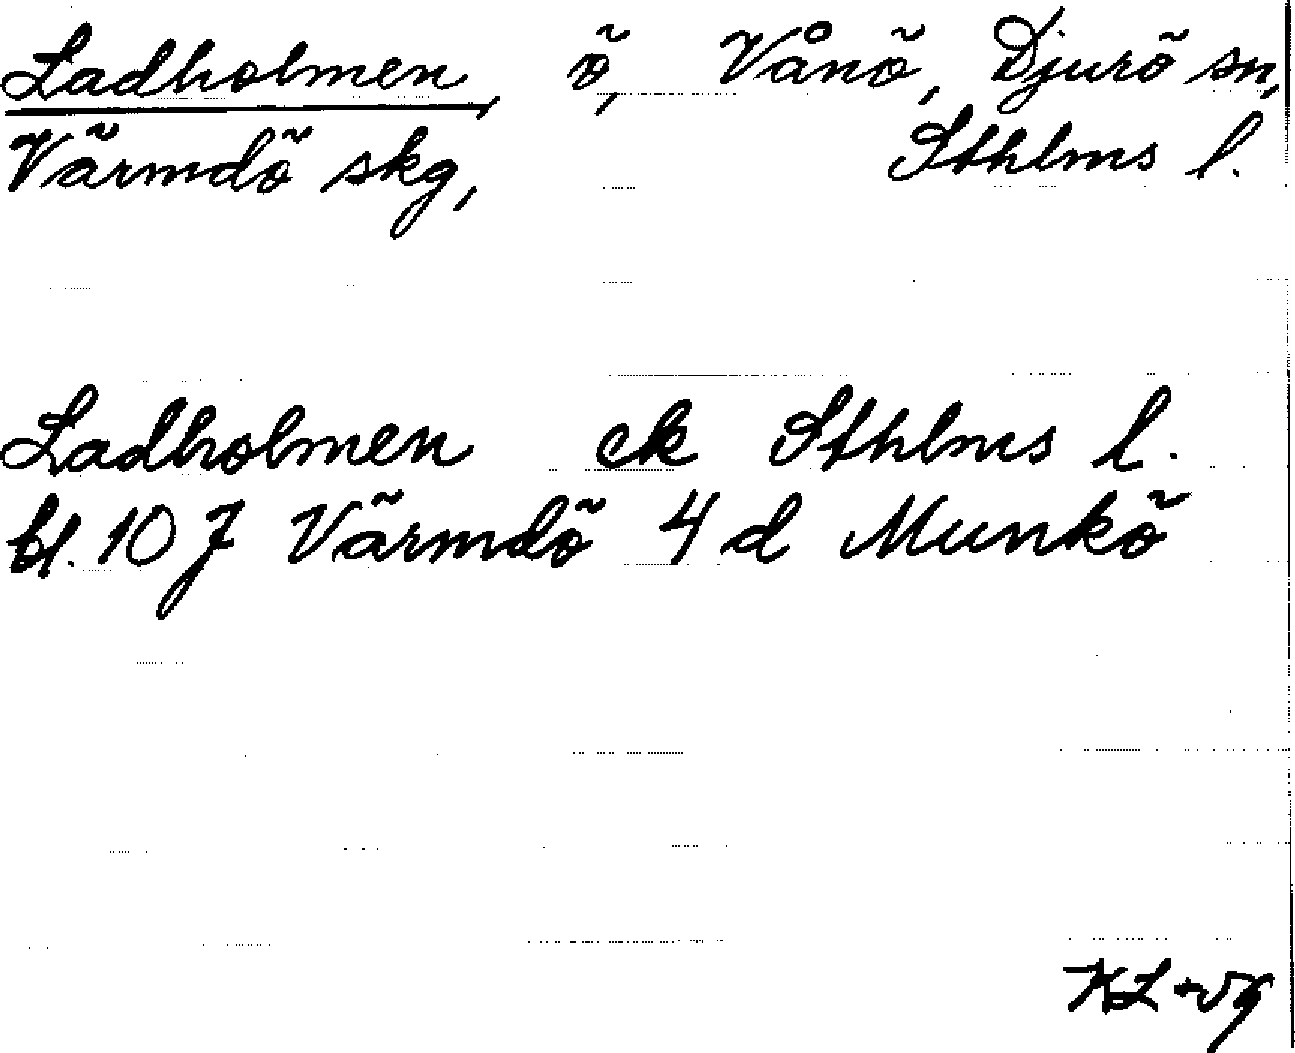 Ladholmen, ö, Vånö, Djurö sn,
Värmdö skg, Sthlms l.
Ladholmen ek Sthlms l.
bl. 107 Värmdö 4 d Munkö